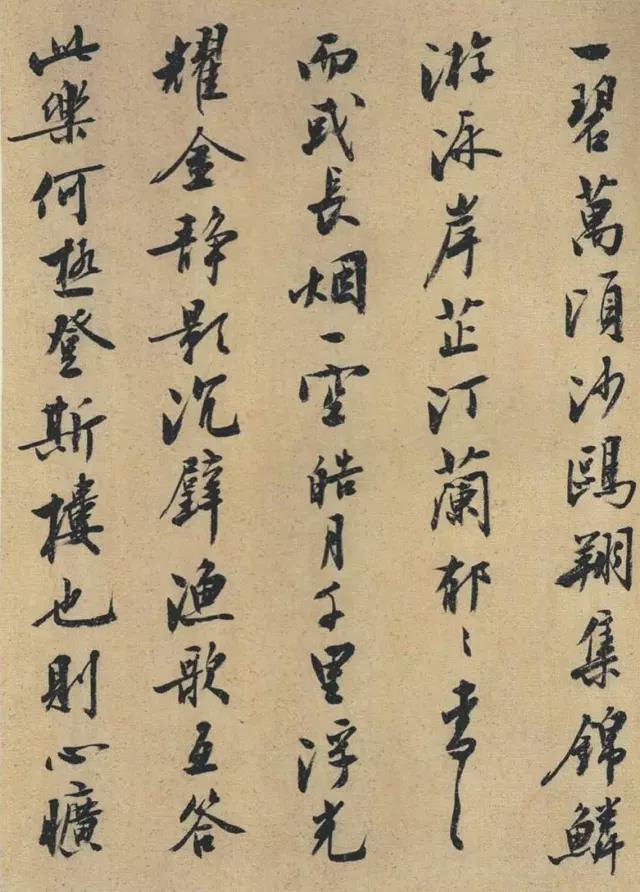 一碧萬頃沙鷗翔集錦鱗
游泳岸芷汀蘭郁〻青〻
而或長烟一空皓月千里浮光
耀金静影沉璧漁歌互答
此樂何極登斯樓也則心曠